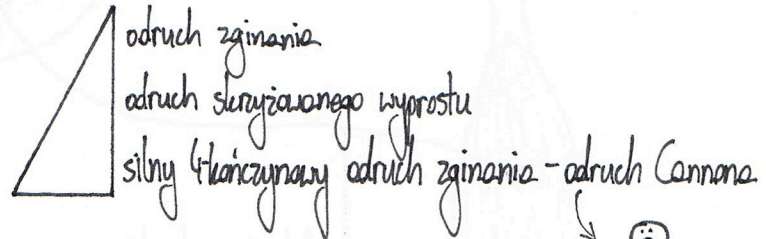 odruch zginania
odruch skrzyżowanego wyprostu
silny 4-kończynowy odruch zginania - odruch Cannona